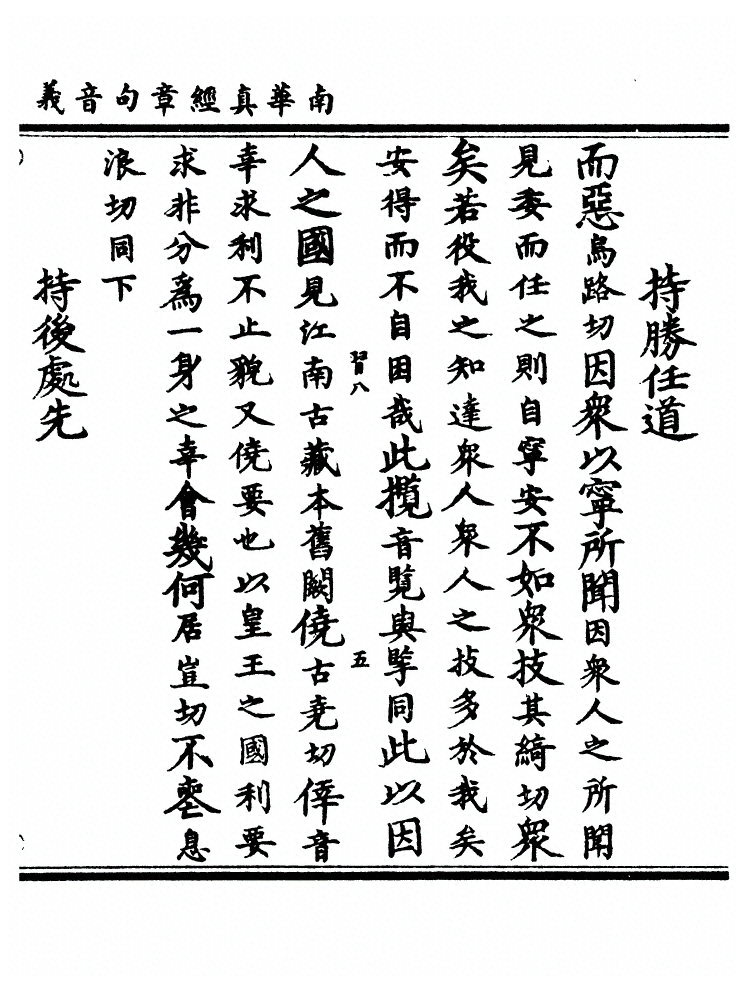 南華真經章句音義
持勝任道
而惡烏路切因衆以寧所聞因衆人之所聞
見委而任之則自寧安不如衆技其綺切衆
矣若役我之知達衆人衆人之技多於我矣
安得而不自困哉此攬音覽與擥同此以因
習八
五
人之國見江南古藏本舊闕僥古堯切倖音
幸求利不止貌又僥要也以皇王之國利要
求非分爲一身之幸會幾何居豈切不喪息
浪切同下
持後處先